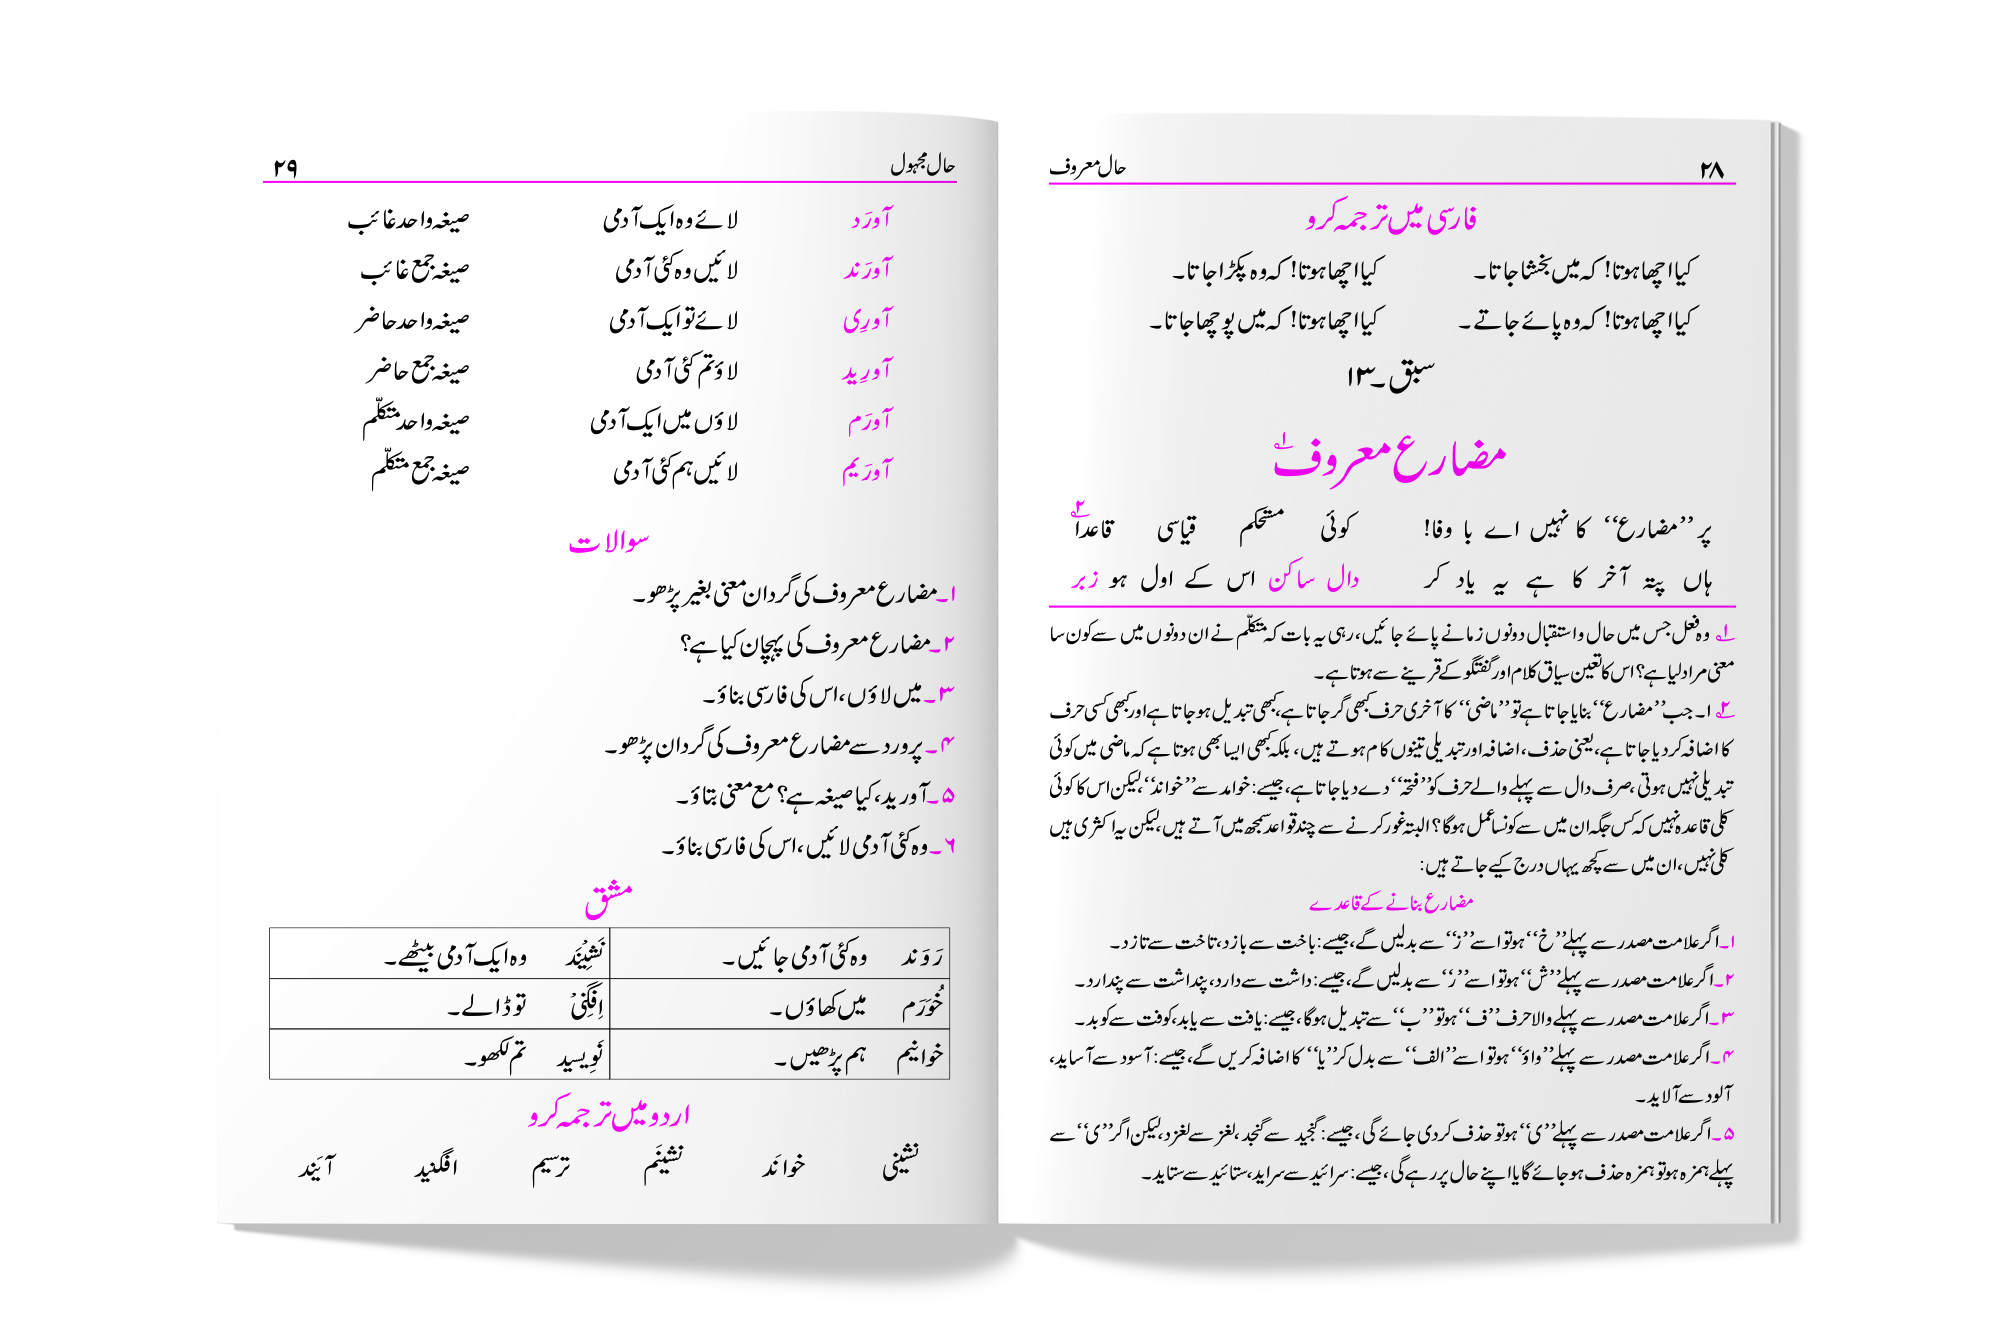 ۲۸ حال معروف
فارسی میں ترجمہ کرو
کیا اچھا ہوتا! کہ میں بخشا جاتا۔ کیا اچھا ہوتا! کہ وہ پکڑا جاتا۔
کیا اچھا ہوتا! کہ وہ پائے جاتے۔ کیا اچھا ہوتا! کہ میں پوچھا جاتا۔
سبق۔۱۳
مضارع معروف ۱؎
پر ’’مضارع‘‘ کا نہیں اے با وفا! کوئی مستحکم قیاسی قاعدا ۲؎
ہاں پتہ آخر کا ہے یہ یاد کر دال ساکن اس کے اول ہو زبر
۱؎ وہ فعل جس میں حال و استقبال دونوں زمانے پائے جائیں، رہی یہ بات کہ متکلّم نے ان دونوں میں سے کون سا
معنی مراد لیا ہے؟ اس کا تعین سیاق کلام اور گفتگو کے قرینے سے ہوتا ہے۔
۲؎ ۱۔ جب ’’مضارع‘‘ بنایا جاتا ہے تو ’’ماضی‘‘ کا آخری حرف کبھی گر جاتا ہے، کبھی تبدیل ہو جاتا ہے اور کبھی کسی حرف
کا اضافہ کر دیا جاتا ہے، یعنی حذف، اضافہ اور تبدیلی تینوں کام ہوتے ہیں، بلکہ کبھی ایسا بھی ہوتا ہے کہ ماضی میں کوئی
تبدیلی نہیں ہوتی، صرف دال سے پہلے والے حرف کو ’’فتحہ‘‘ دے دیا جاتا ہے، جیسے: خوامد سے ’’خواند‘‘، لیکن اس کا کوئی
کلی قاعدہ نہیں کہ کس جگہ ان میں سے کونسا عمل ہوگا؟ البتہ غور کرنے سے چند قواعد سمجھ میں آتے ہیں، لیکن یہ اکثری ہیں
کلی نہیں، ان میں سے کچھ یہاں درج کیے جاتے ہیں:
مضارع بنانے کے قاعدے
۱۔ اگر علامت مصدر سے پہلے ’’خ‘‘ ہو تو اسے ’’ز‘‘ سے بدلیں گے، جیسے: باخت سے بازد، تاخت سے تازد۔
۲۔ اگر علامت مصدر سے پہلے ’’ش‘‘ ہو تو اسے ’’ر‘‘ سے بدلیں گے، جیسے: داشت سے دارد، پنداشت سے پندارد۔
۳۔ اگر علامت مصدر سے پہلے والا حرف ’’ف‘‘ ہو تو ’’ب‘‘ سے تبدیل ہوگا، جیسے: یافت سے یابد، کوفت سے کوبد۔
۴۔ اگر علامت مصدر سے پہلے ’’واؤ‘‘ ہو تو اسے ’’الف‘‘ سے بدل کر ’’یا‘‘ کا اضافہ کریں گے، جیسے: آسود سے آساید،
آلود سے آلاید۔
۵۔ اگر علامت مصدر سے پہلے ’’ی‘‘ ہو تو حذف کر دی جائے گی، جیسے: گنجید سے گنجد، لغز سے لغزد، لیکن اگر ’’ی‘‘ سے
پہلے ہمزہ ہو تو ہمزہ حذف ہو جائے گا یا اپنے حال پر رہے گی، جیسے: سرائید سے سراید، ستائید سے ستاید۔
حال مجہول ۲۹
آورَد لائے وہ ایک آدمی صیغہ واحد غائب
آورَند لائیں وہ کئی آدمی صیغہ جمع غائب
آورِی لائے تو ایک آدمی صیغہ واحد حاضر
آورِید لاؤ تم کئی آدمی صیغہ جمع حاضر
آورَم لاؤں میں ایک آدمی صیغہ واحد متکلّم
آورَیم لائیں ہم کئی آدمی صیغہ جمع متکلّم
سوالات
۱۔ مضارع معروف کی گردان معنی بغیر پڑھو۔
۲۔ مضارع معروف کی پہچان کیا ہے؟
۳۔ میں لاؤں، اس کی فارسی بناؤ۔
۴۔ پرورد سے مضارع معروف کی گردان پڑھو۔
۵۔ آورید، کیا صیغہ ہے؟ مع معنی بتاؤ۔
۶۔ وہ کئی آدمی لائیں، اس کی فارسی بناؤ۔
مشق
رَوَند وہ کئی آدمی جائیں۔ نَشِیْنَد وہ ایک آدمی بیٹھے۔
خُورَم میں کھاؤں۔ اِفگنِیْ تو ڈالے۔
خوانیم ہم پڑھیں۔ نَوِیسید تم لکھو۔
اردو میں ترجمہ کرو
نشینی خوانَد نشینَم ترسیم افگنید آیَند